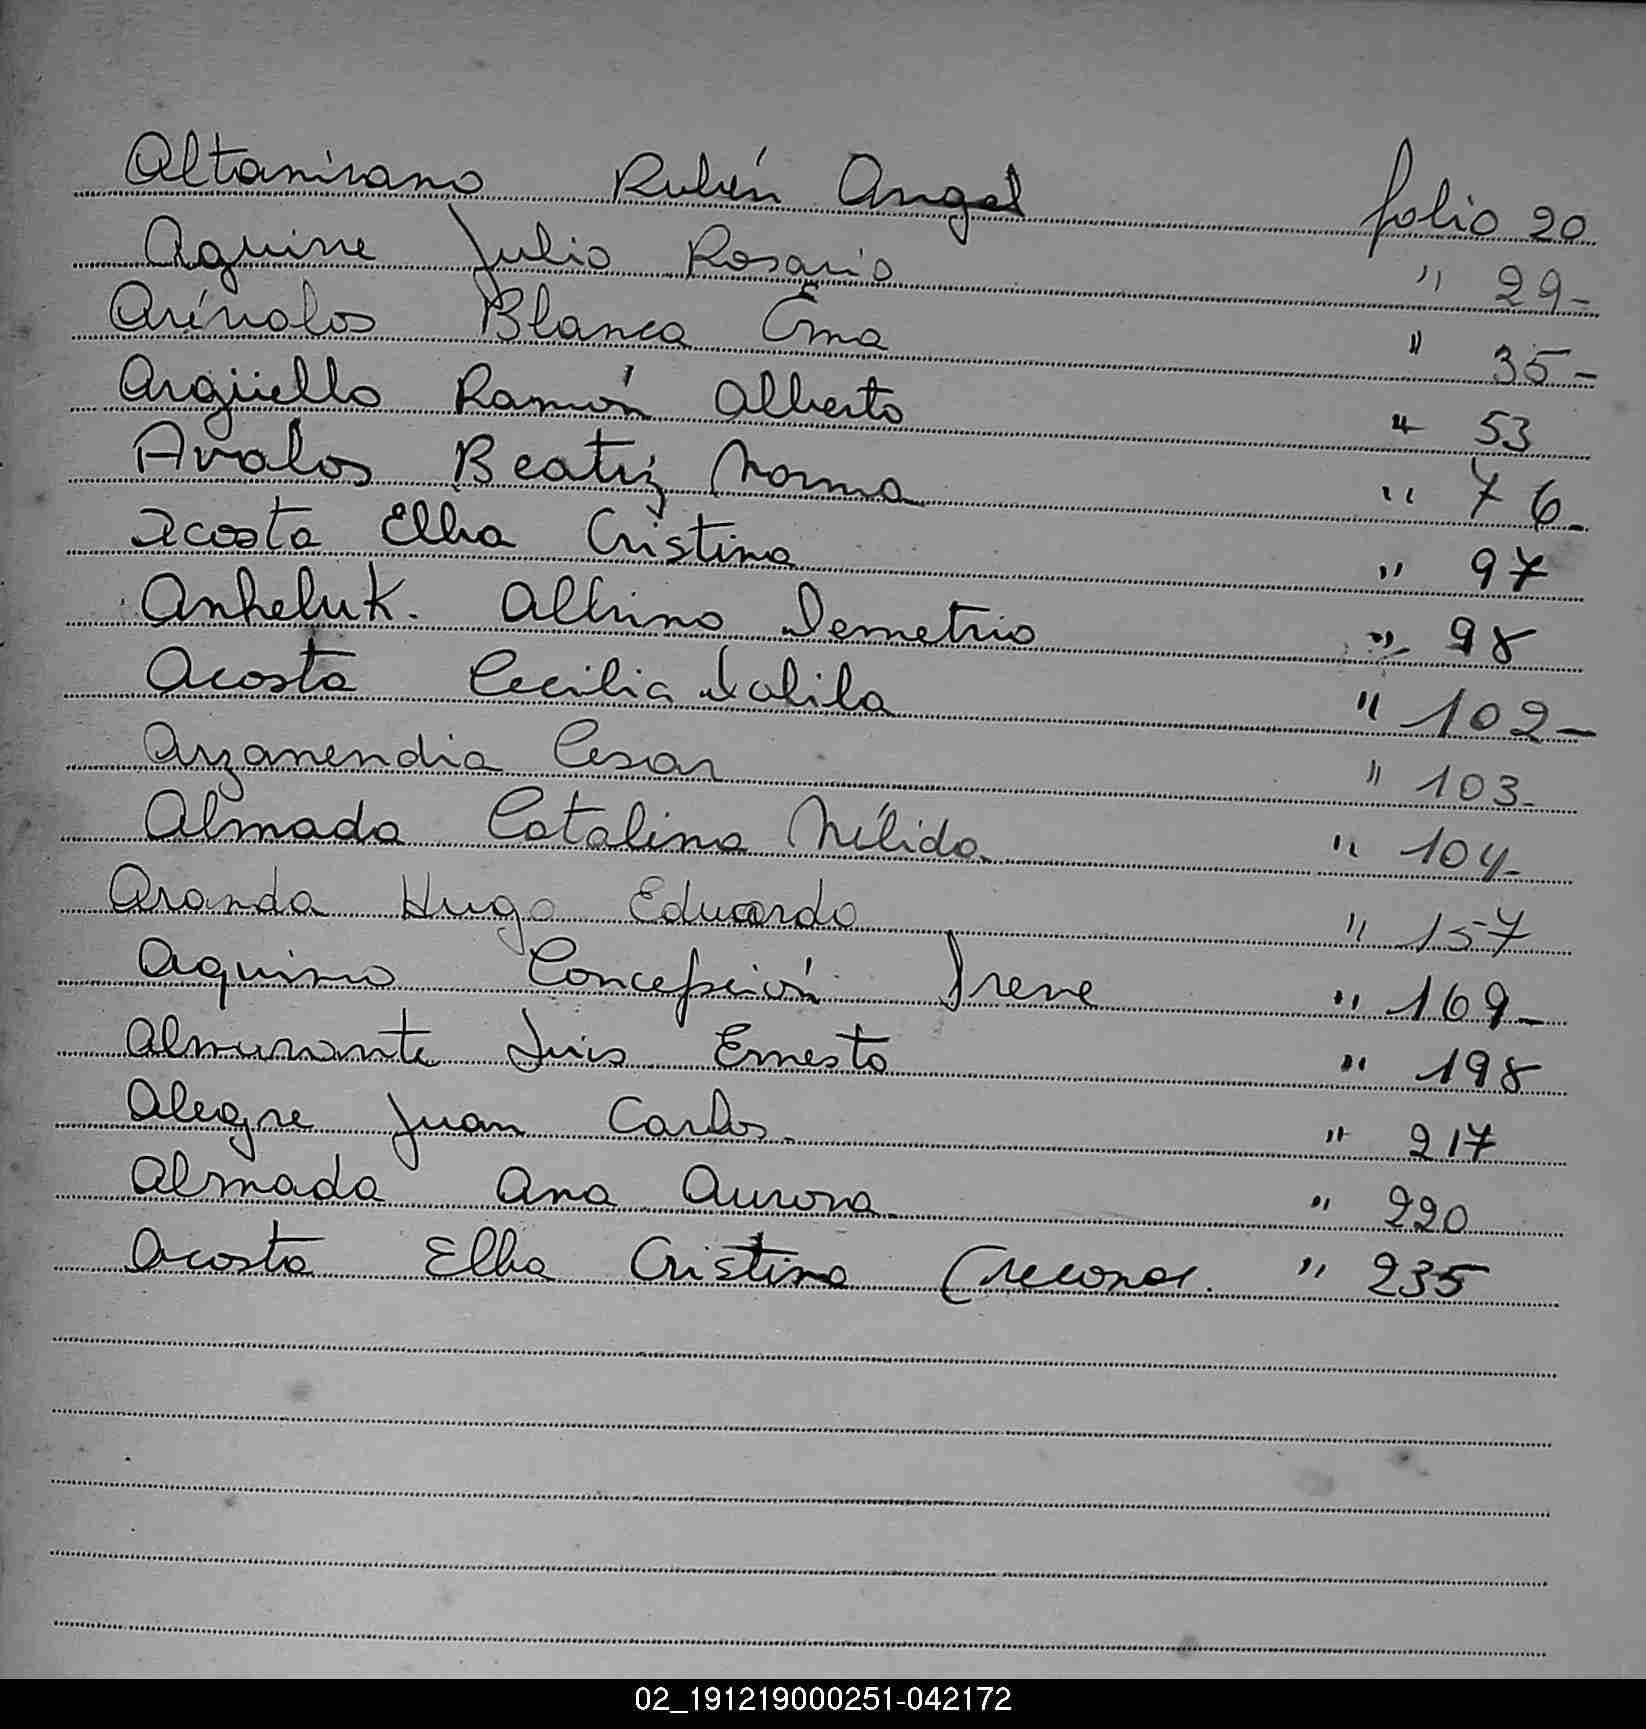 Altamirano Rubén Angel folio 20
Aguirre Julio Rosario " 29-
Arévalos Blanca Ema " 35-
Argüello Ramón Alberto " 53
Avalos Beatriz Norma " 76-
Acosta Elba Cristina " 97
Anheluk. Albino Demetrio " 98
Acosta Cecilia Dalila " 102-
Arzamendia Cesar " 103-
Almada Catalina Nélida " 104-
Aranda Hugo Eduardo " 157
Aquino Concepción Irene " 169-
Almirante Luis Ernesto " 198
Alegre Juan Carlos. " 217
Almada Ana Aurora. " 220
Acosta Elba Cristina (reconoc. " 235
02_191219000251-042172